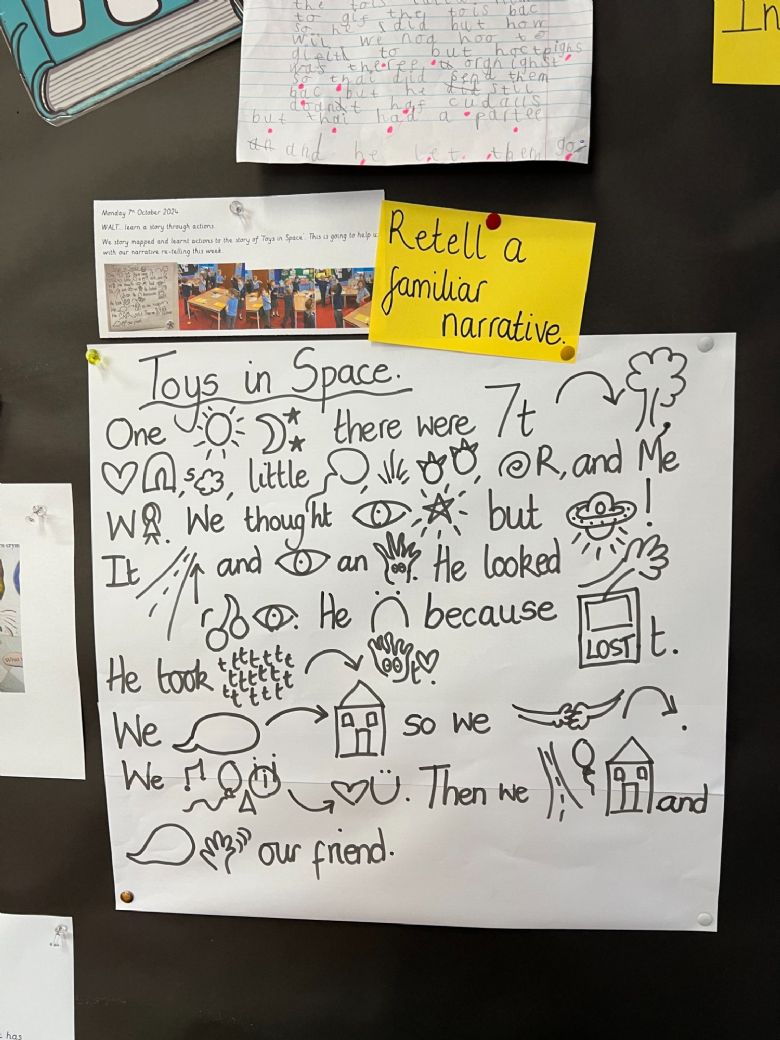 to gif the tois bac
so he did but how
wil we noa hoo to
to but hoctpighs
was theree orgnighst
so thai did send them
bac but he did still
haf cudalls
but thai had a partee
an and he let them go
In
Monday 7th October 2024
WALT: learn a story through actions
We story mapped and learnt actions to the story of 'Toys in Space'. This is going to help u
with our narrative re-telling this week.
Retell a
familiar
narrative.
Toys in Space.
One there were 7t
s , little R, and Me
W . We thought but !
It and an . He looked
. He because LOST t.
He took tttttt tttttt tttttt t .
We so we .
We . Then we and
our friend.
has